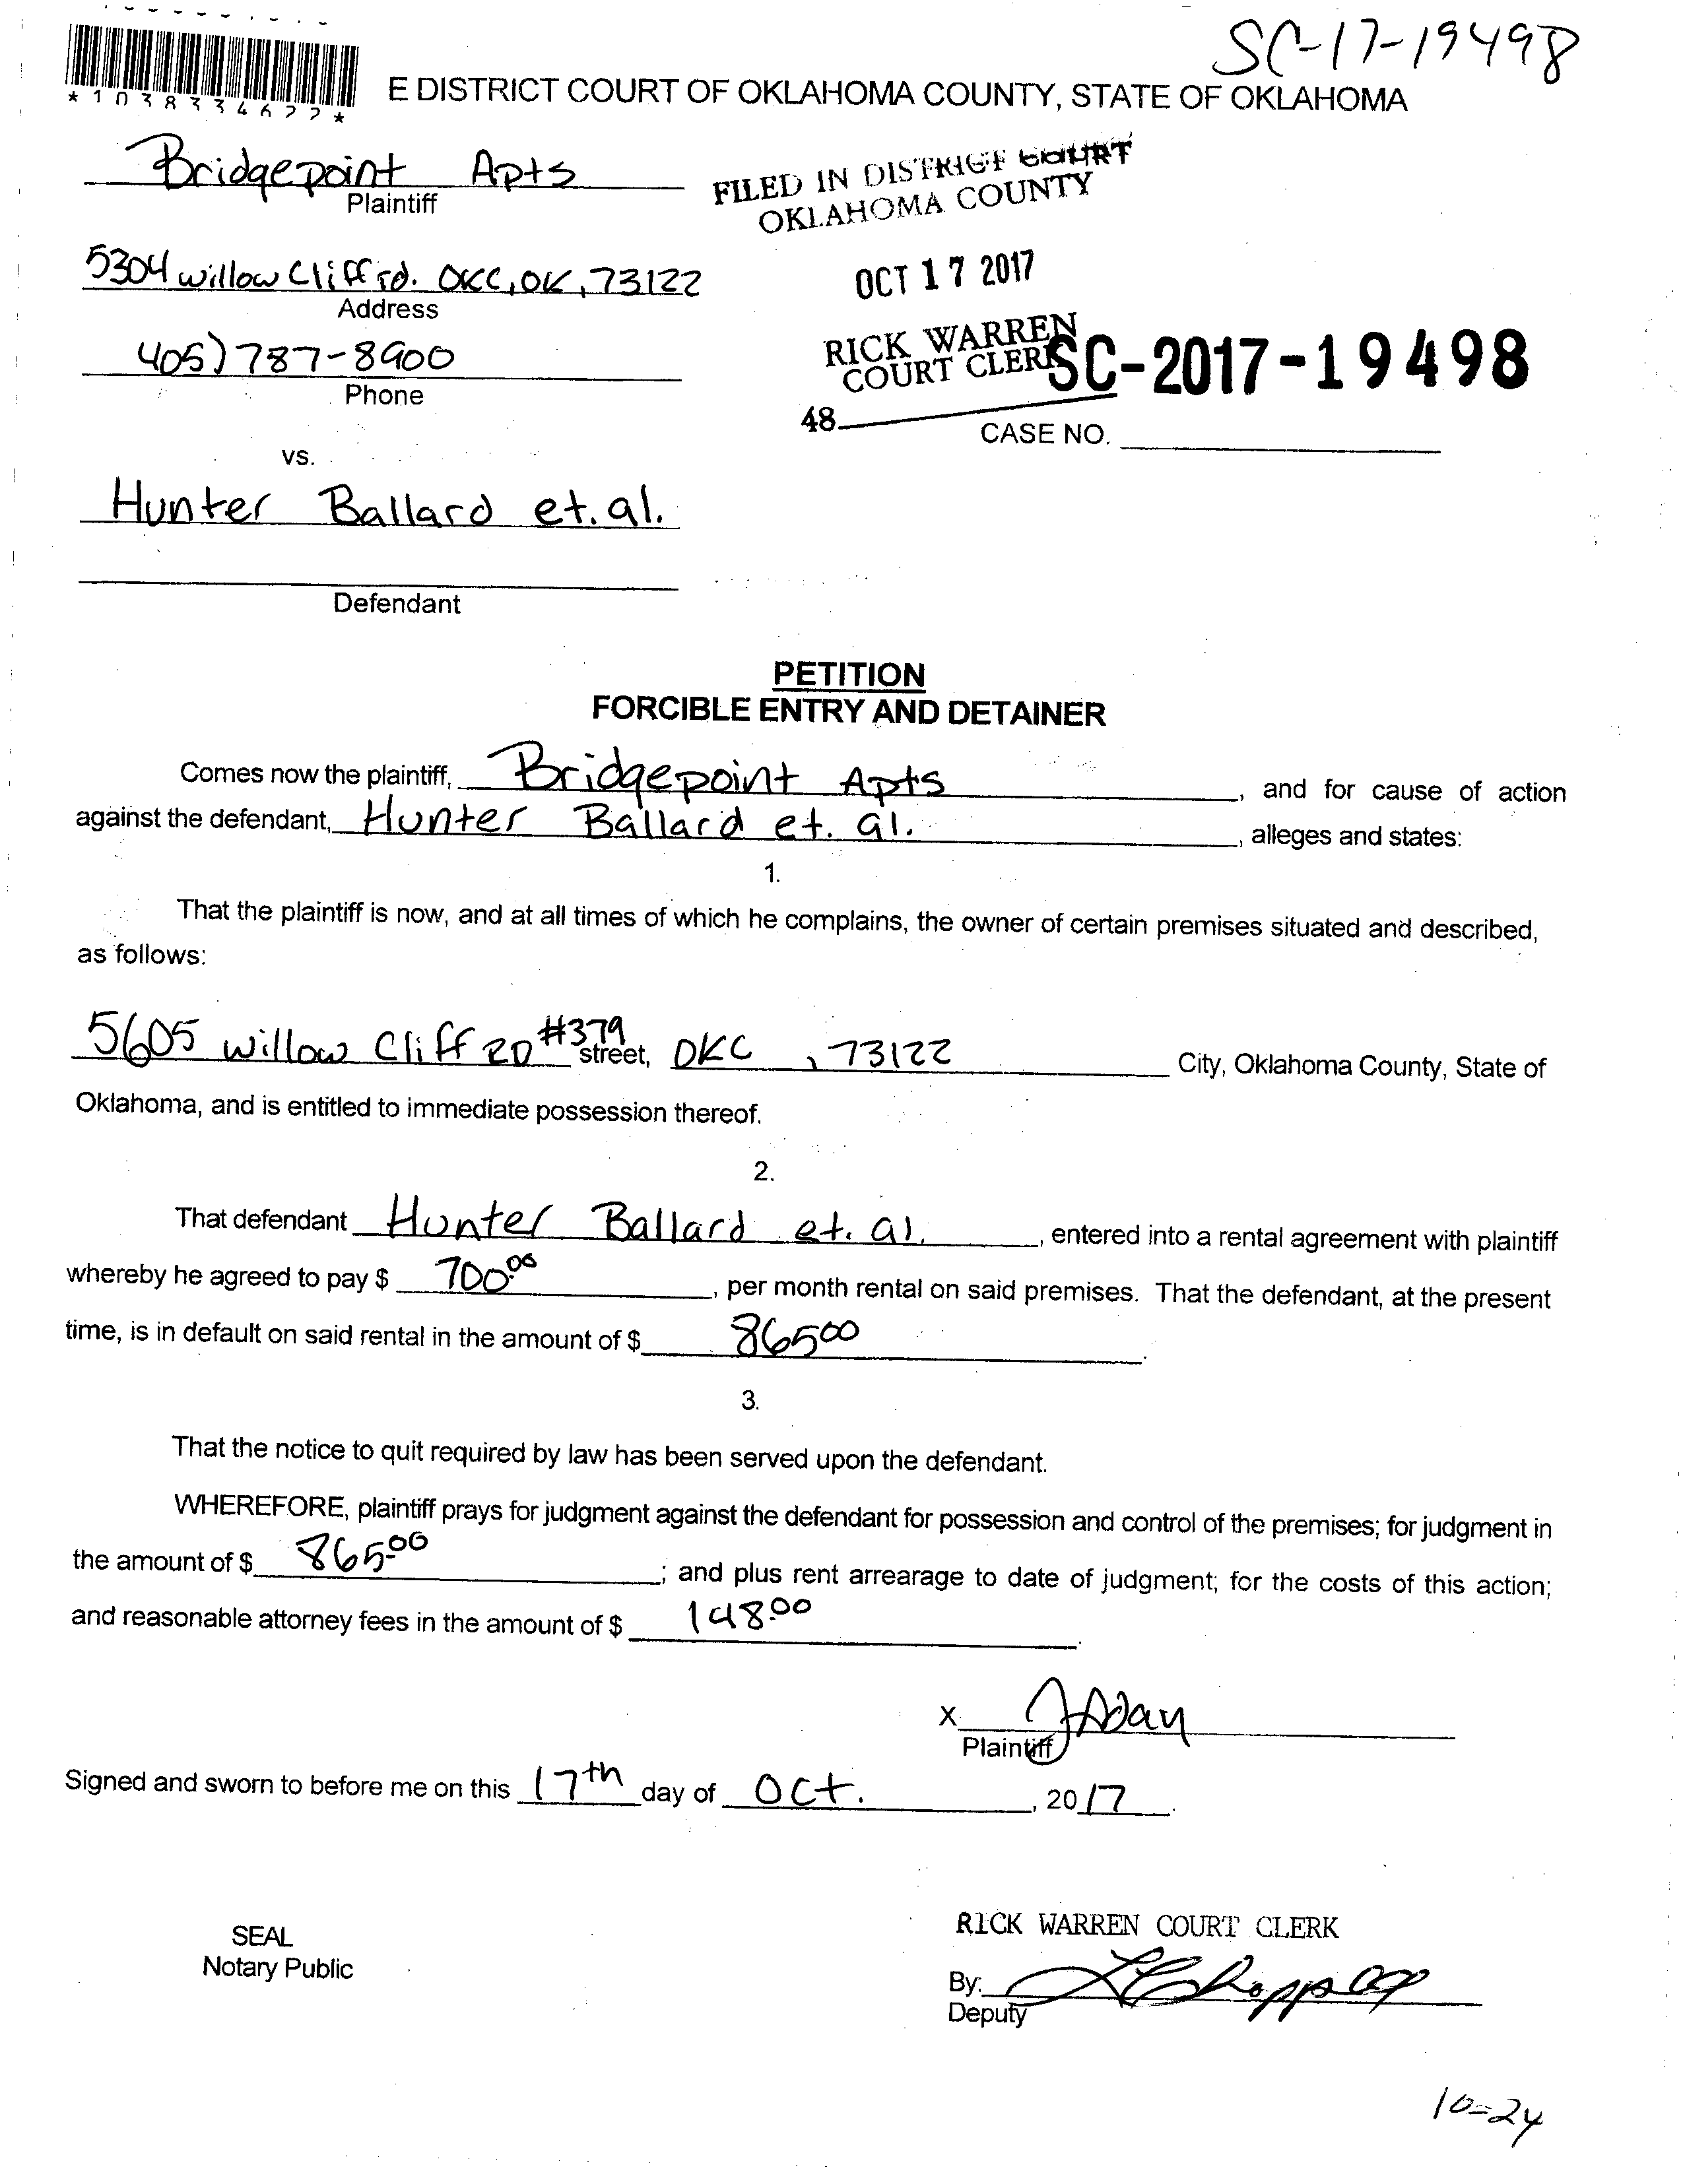 SC-17-19498
*1038334622*
E DISTRICT COURT OF OKLAHOMA COUNTY, STATE OF OKLAHOMA
Bridgepoint Apts
Plaintiff
FILED IN DISTRICT COURT
OKLAHOMA COUNTY
5304 willow Cliff rd. OKC, OK, 73122
Address
OCT 17 2017
405) 787-8900
Phone
RICK WARREN
COURT CLERK
SC-2017-19498
48
CASE NO.
vs.
Hunter Ballard et. al.
Defendant
PETITION
FORCIBLE ENTRY AND DETAINER
Comes now the plaintiff, Bridgepoint Apts, and for cause of action
against the defendant, Hunter Ballard et. al., alleges and states:
1.
That the plaintiff is now, and at all times of which he complains, the owner of certain premises situated and described,
as follows:
5605 willow Cliff RD #379 street, OKC, 73122 City, Oklahoma County, State of
Oklahoma, and is entitled to immediate possession thereof.
2.
That defendant Hunter Ballard et. al., entered into a rental agreement with plaintiff
whereby he agreed to pay $ 700.00, per month rental on said premises. That the defendant, at the present
time, is in default on said rental in the amount of $ 86500.
3.
That the notice to quit required by law has been served upon the defendant.
WHEREFORE, plaintiff prays for judgment against the defendant for possession and control of the premises; for judgment in
the amount of $ 865.00; and plus rent arrearage to date of judgment; for the costs of this action;
and reasonable attorney fees in the amount of $ 148.00.
X
Plaintiff
Signed and sworn to before me on this 17th day of Oct., 2017.
SEAL
Notary Public
RICK WARREN COURT CLERK
By:
Deputy
10-24